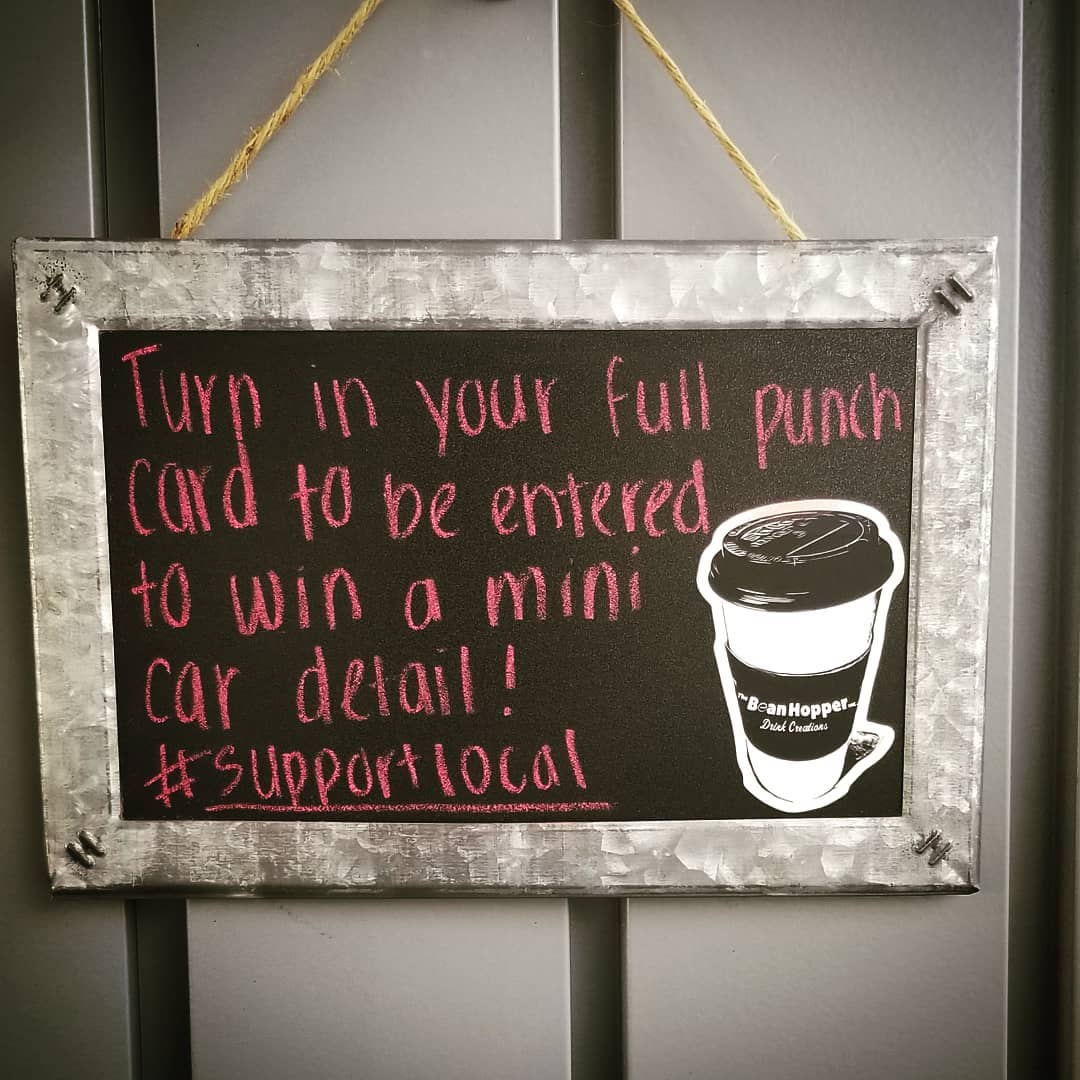 Turn in your full punch
card to be entered
to win a mini
car detail!
#supportlocal
The Bean Hopper INC.
Drink Creations